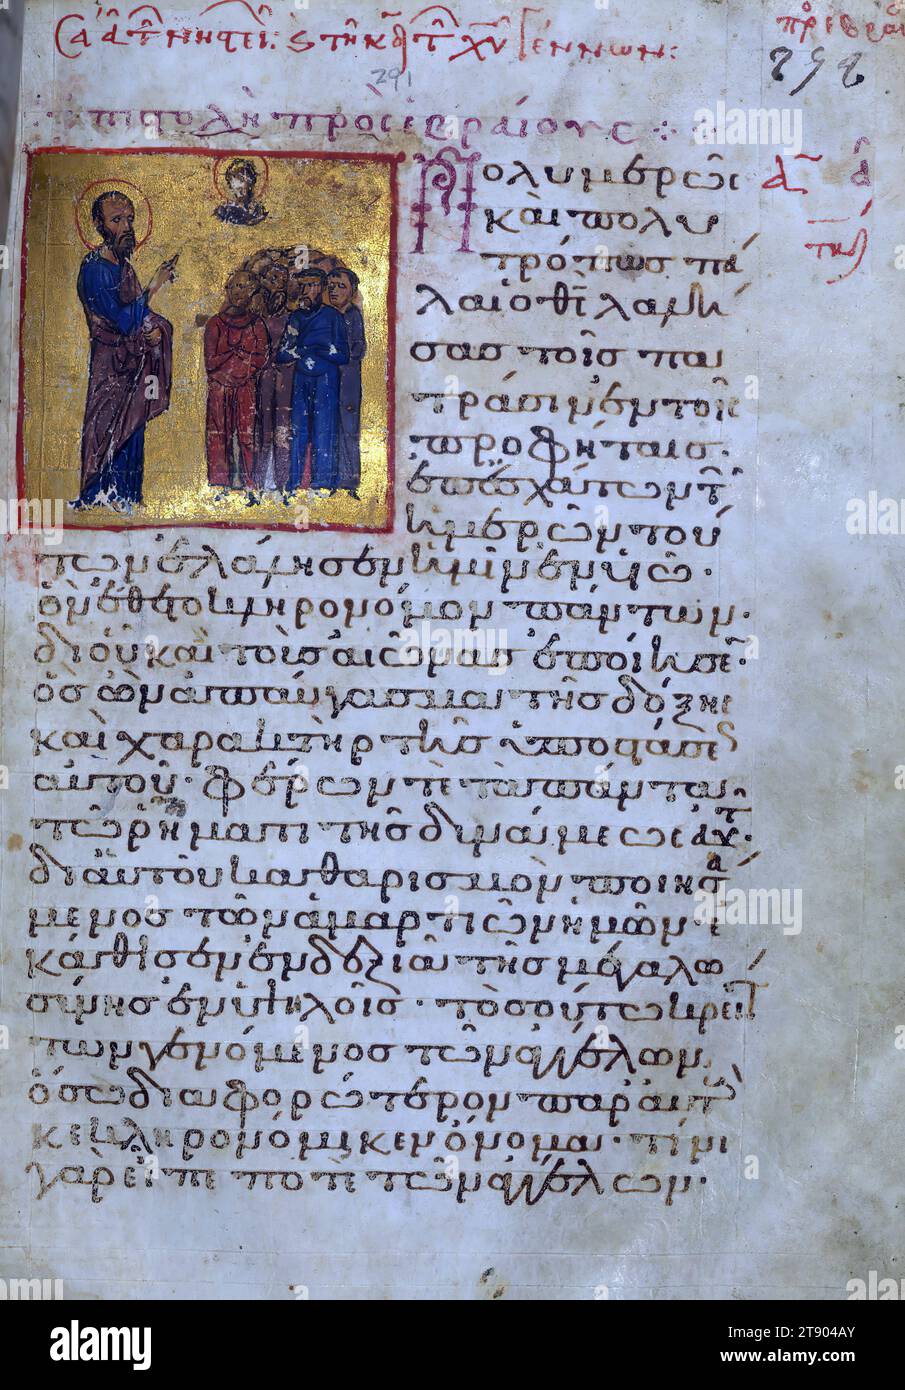 πρὸς ἑβραί
291
ἐπιστολὴ πρὸς ἑβραίους
Πολυμερῶς
καὶ πολυ
τρόπως πά
λαι ὁ θς λαλή
σας τοῖς πα
τράσιν ἐν τοῖς
προφήταις·
ἐπ' ἐσχάτων τῶν
ἡμερῶν τού
των ἐλάλησεν ἡμῖν ἐν υἱῶ·
ὃν ἔθετο κληρονόμον πάντων·
δι' οὗ καὶ τοὺς αἰῶνας ἐποίησεν·
ὃς ὢν ἀπαύγασμα τῆς δόξης
καὶ χαρακτὴρ τῆς ὑποστάσεως
αὐτοῦ· φέρων τὲ τὰ πάντα
τῶ ῥήματι τῆς δυνάμεως αὐτοῦ·
δι' αὐτοῦ καθαρισμὸν ποιησά
μενος τῶν ἁμαρτιῶν ἡμῶν· ἐ
κάθισεν ἐν δεξιᾶ τῆς μεγαλω
σύνης ἐν ὑψηλοῖς· τοσούτω κρείτ
των γενόμενος τῶν ἀγγέλων
ὅσω διαφορώτερον παρ' αὐτοὺς
κεκληρονόμηκεν ὄνομα· τίνι
γὰρ εἶπέ ποτε τῶν ἀγγέλων·
alamy
Image ID: 2T904AY
www.alamy.com